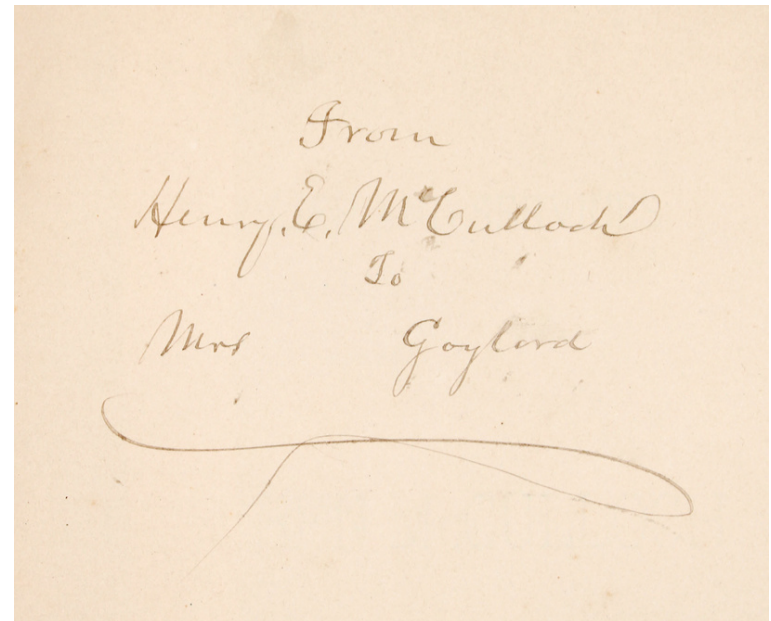 From
Henry. E. McCulloch
To
Mrs Gaylord